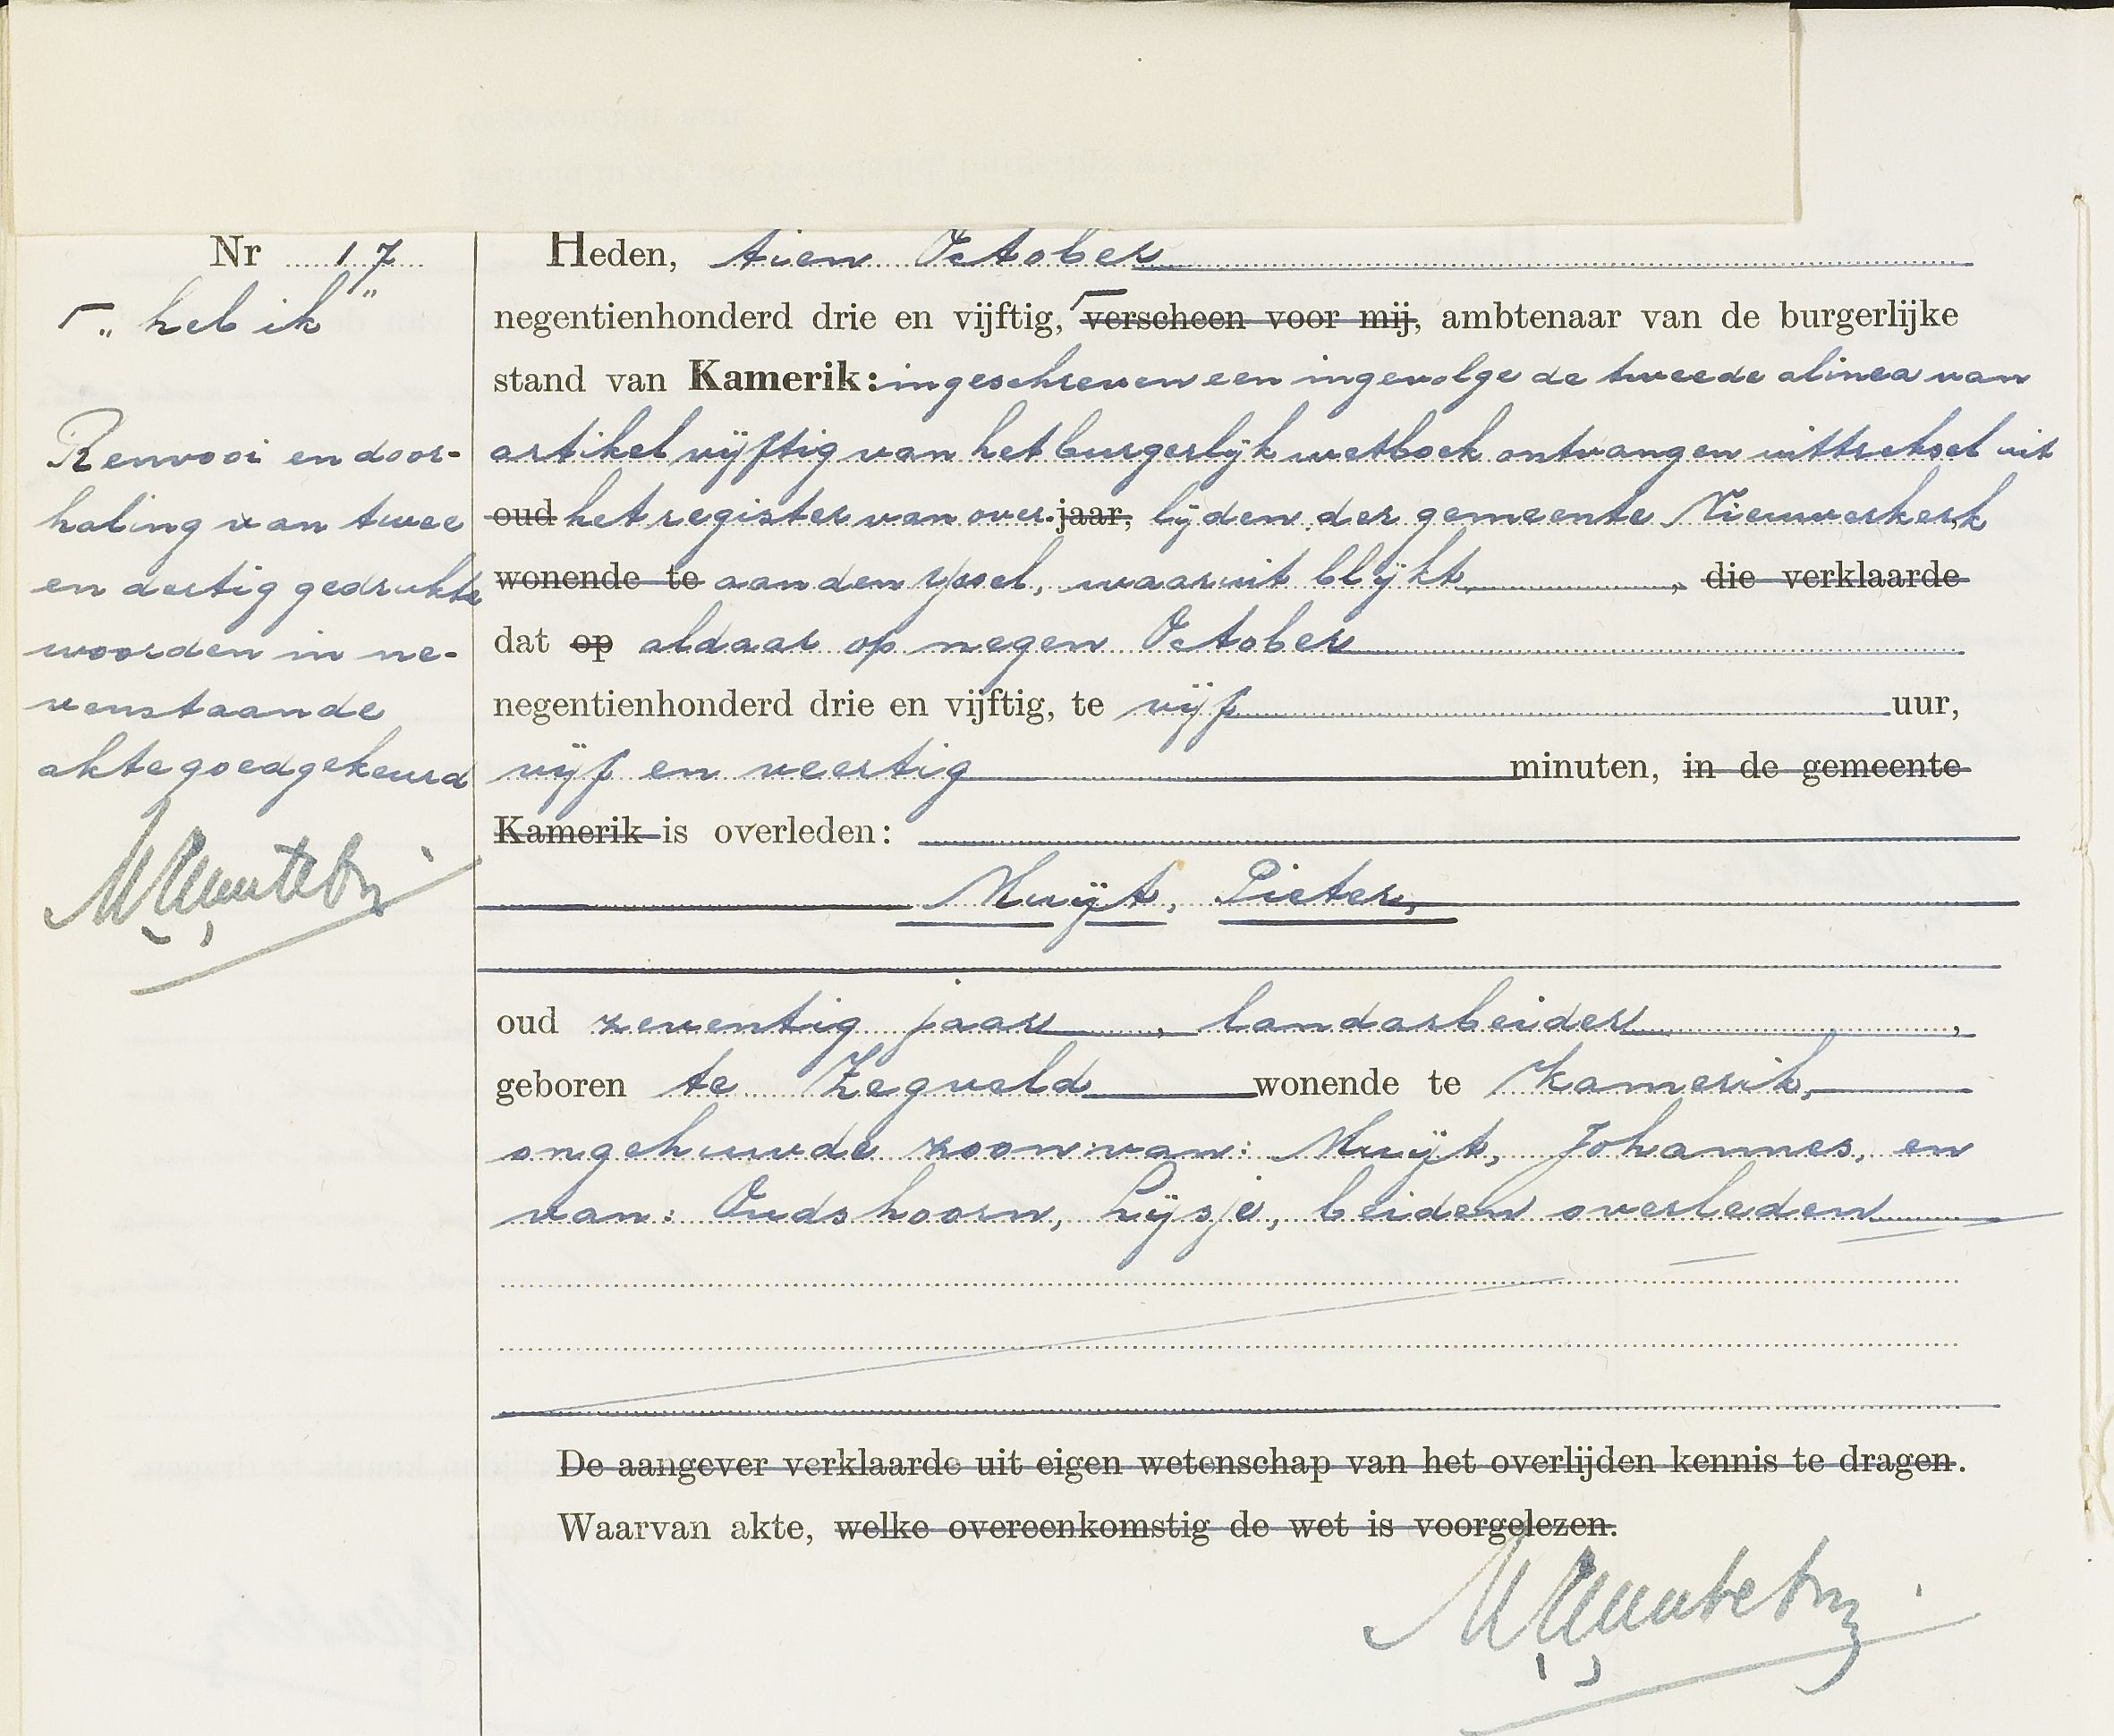 Nr 17
„ heb ik "
Renvooi en door-
haling van twee
en dertig gedrukte
woorden in ne-
venstaande
akte goedgekeurd
Heden, tien October
negentienhonderd drie en vijftig, verscheen voor mij, ambtenaar van de burgerlijke
stand van Kamerik: ingeschreven een ingevolge de tweede alinea van
artikel vijftig van het burgerlijk wetboek ontvangen uittreksel uit
oud het register van over- jaar, lijden der gemeente Nieuwerkerk
wonende te aan den IJssel, waaruit blijkt, die verklaarde
dat op aldaar op negen October
negentienhonderd drie en vijftig, te vijf uur,
vijf en veertig minuten, in de gemeente
Kamerik is overleden:
Muijt, Pieter,
oud zeventig jaar, landarbeider,
geboren te Zegveld wonende te Kamerik,
ongehuwde zoon van: Muijt, Johannes, en
van: Oudshoorn, Lijsje, beiden overleden
De aangever verklaarde uit eigen wetenschap van het overlijden kennis te dragen.
Waarvan akte, welke overeenkomstig de wet is voorgelezen.